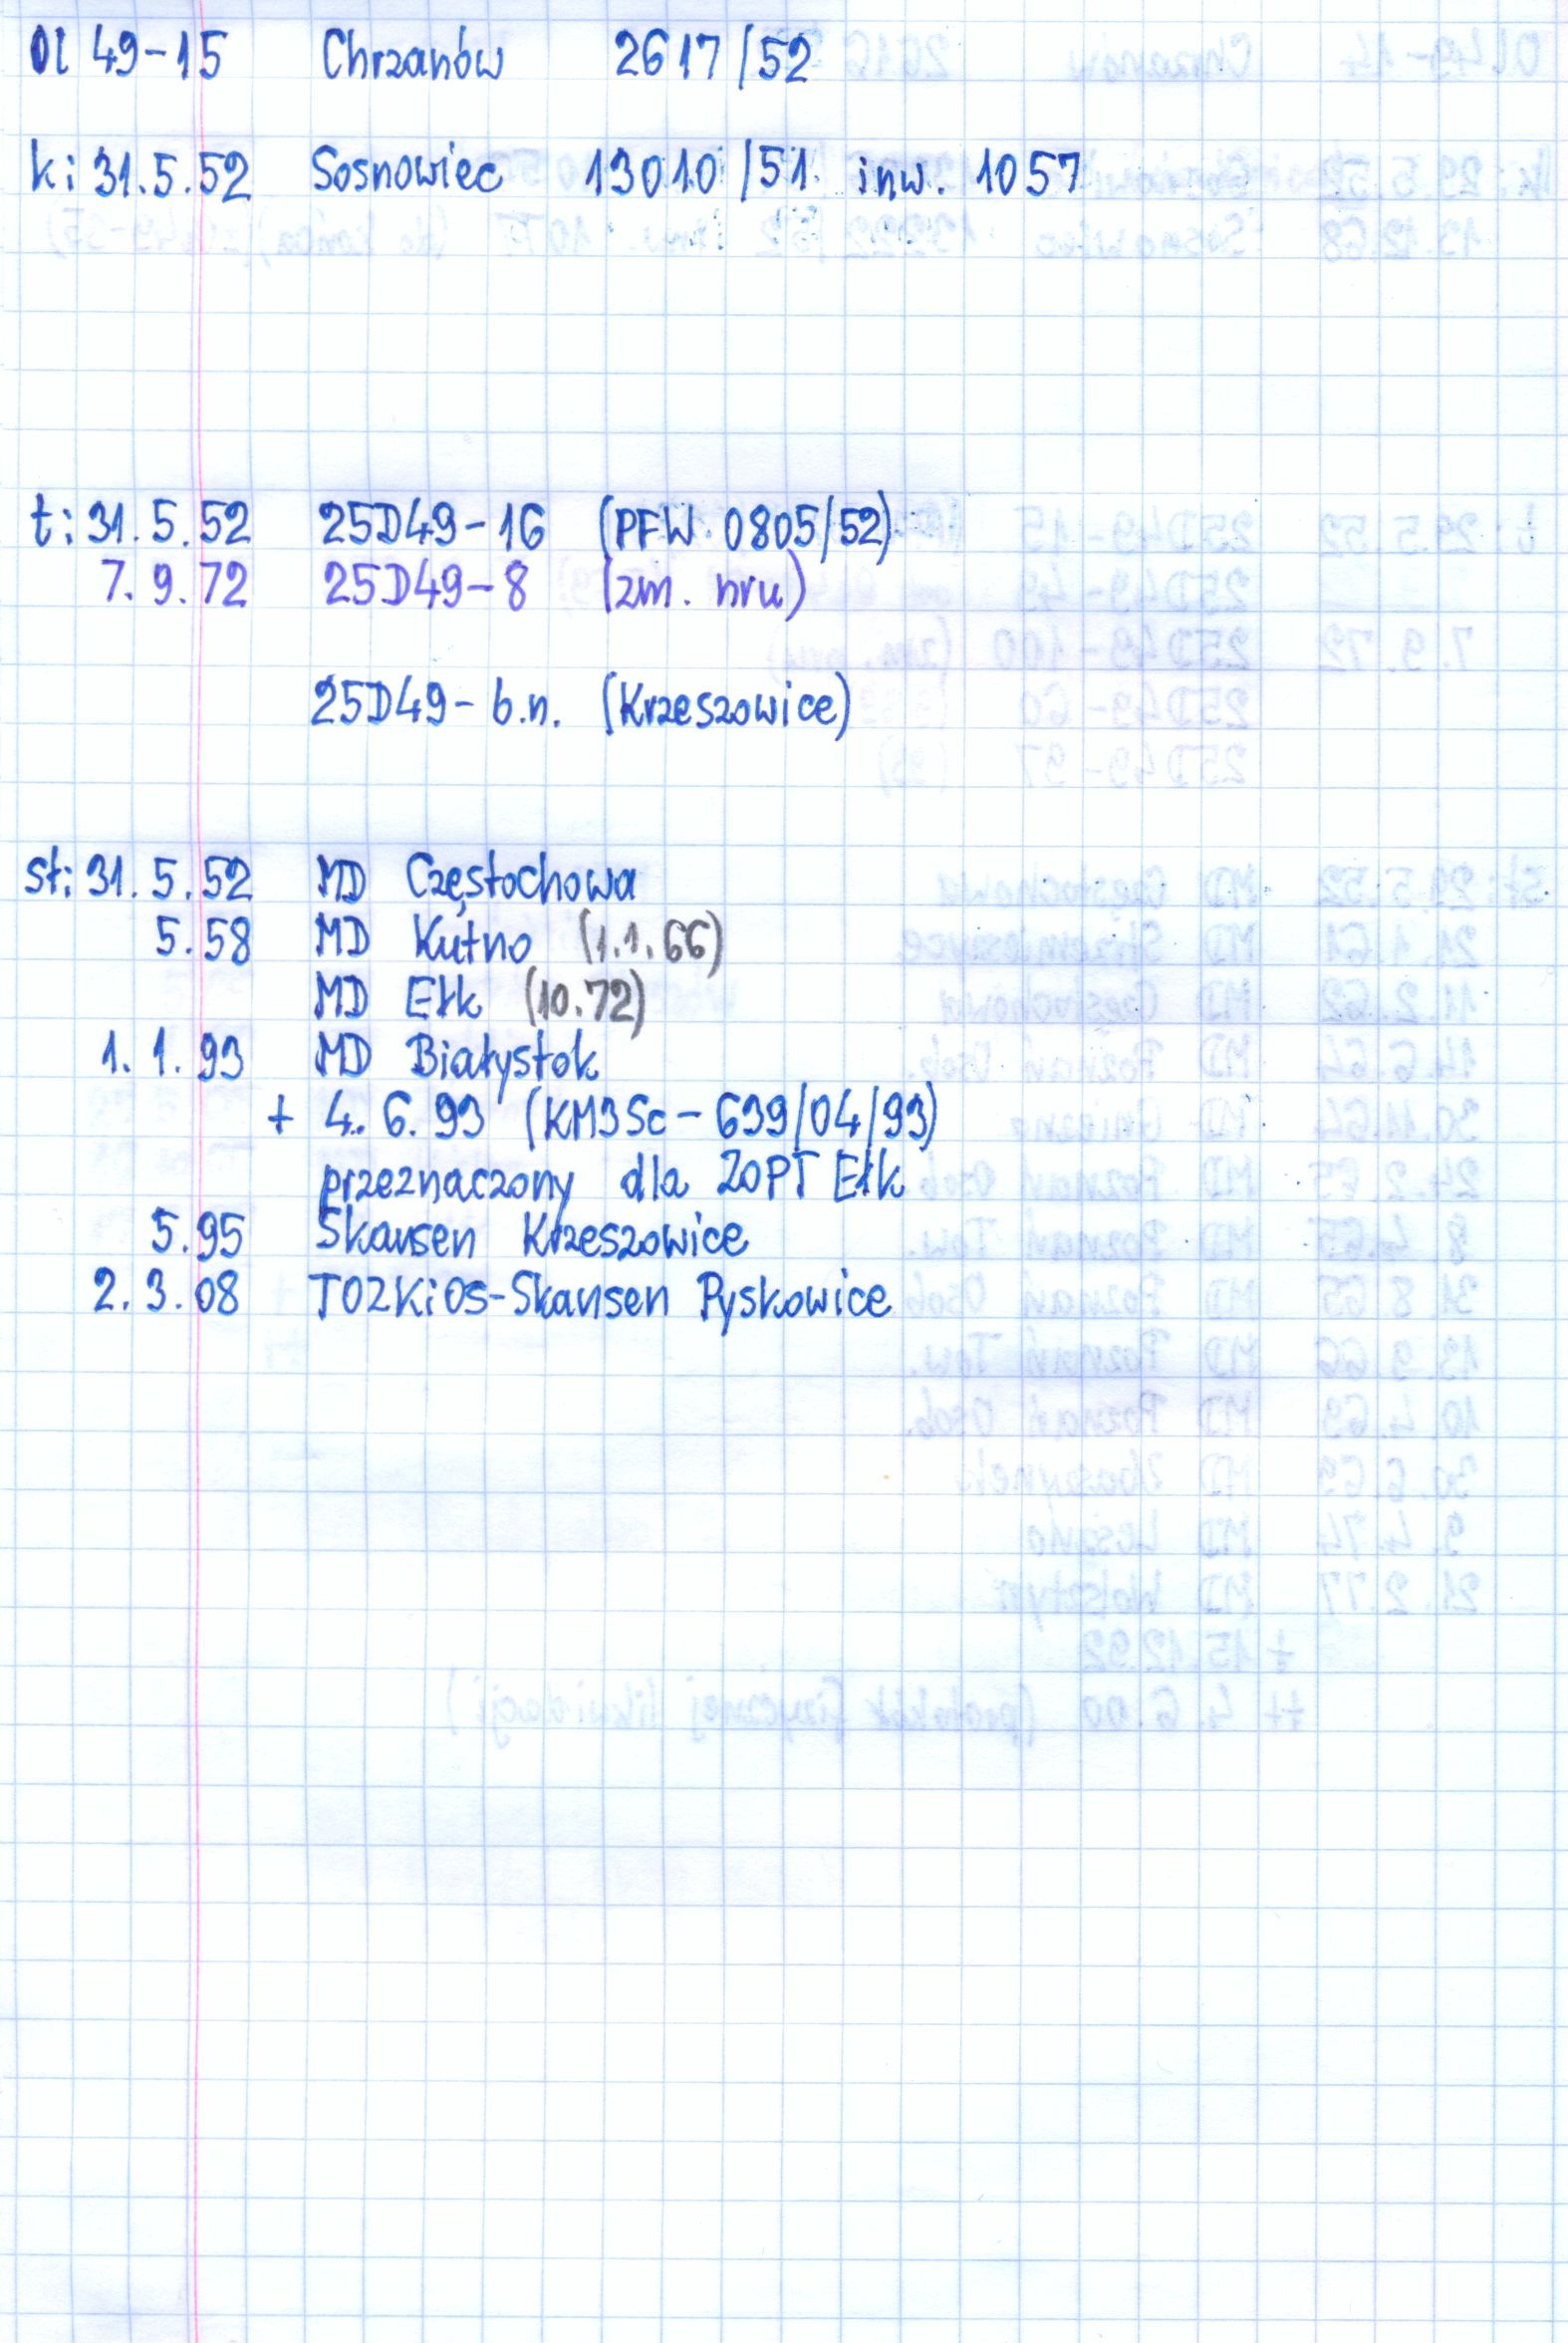 Ol 49-15 Chrzanów 2617/52
k: 31.5.52 Sosnowiec 13010/51 inw. 1057
t: 31.5.52 25D49-16 (PFW 0805/52)
7.9.72 25D49-8 (zm. nru)
25D49-b.n. (Krzeszowice)
st: 31.5.52 MD Częstochowa
5.58 MD Kutno (1.1.66)
MD Ełk (10.72)
1.1.93 MD Białystok
+ 4.6.93 (KM3Sc-639/04/93)
przeznaczony dla ZOPT Ełk
5.95 Skansen Krzeszowice
2.3.08 TOZKiOS-Skansen Pyskowice